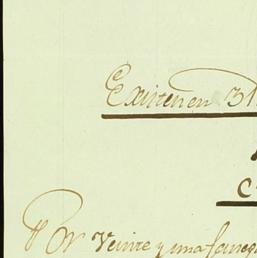 Existen en 31
C
Por Veinte y una faneg